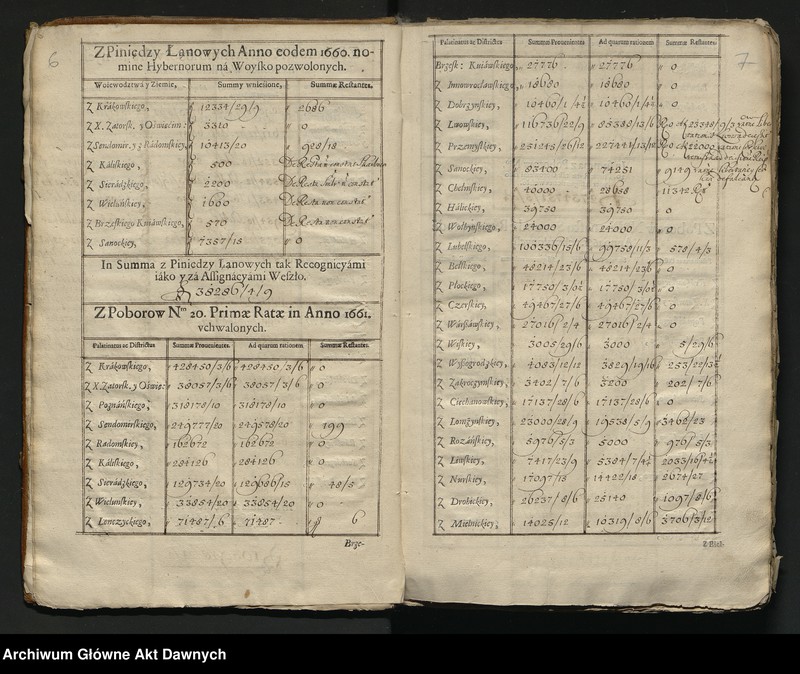 6
Z Piniędzy Łanowych Anno eodem 1660. no-
mine Hybernorum ná Woysko pozwolonych.
Woiewodztwá y Ziemie, Summy wniesione, Summæ Restantes.
Z Krákowskiego, 12334/29/9 2686
Z X. Zatorsk. y Oświecim: 3310 - 0
Z Sendomir. y z Rádomskiey, 10413/20 928/18
Z Káliskiego, 500 De Resta non constat
Z Sierádzkiego, 2200 De Resta non constat
Z Wieluńskiey, 1680 De Resta non constat
Z Brzeskiego Kuiáwskiego, 570 De Resta non constat
Z Sanockiey, 7357/15 0
In Summa z Piniedzy Łanowych tak Recognicyámi
iáko y zá Assignácyámi Weszło.
38286/4/9
Z Poborow Nro 20. Primæ Ratæ in Anno 1661.
vchwalonych.
Palatinatus ac Districtus Summæ Prouenientes. Ad quarum rationem Summæ Restantes.
Z Krákowskiego, 428450/3/6 428450/3/6 0
Z X. Zatorsk. y Oświe: 38057/3/6 38057/3/6 0
Z Poznáńskiego, 318178/10 318178/10 0
Z Sendomirskiego, 249777/20 249578/20 199
Z Radomskiey, 162672 162672 0
Z Káliskiego, 284126 284126 0
Z Sierádzkiego, 129734/20 129686/15 48/5
Z Wieluńskiey, 33854/20 33854/20 0
Z Lenczyckiego, 71487/6 71487 - 6
Brze-
7
Palatinatus ac Districtus Summæ Prouenientes Ad quarum rationem Summæ Restantes.
Brzesk: Kuiáwskiego, 27776 27776 0
Z Innowrocławskiego, 18680 18680 0
Z Dobrzyńskiey, 10460/1/4½ 10460/1/4½ 0
Z Lwowskiey, 116736/22/9 83388/13/6 Ro At 23348/9/3
Z Przemyskiey, 251245/26/12 227441/13/12
Z Sanockiey, 83400 74251 9149
Z Chełmskiey, 40000 28658 11342
Z Hálickiey, 39750 39750 0
Z Wołhyńskiego, 24000 24000 0
Z Lubelskiego, 100336/15/6 99758/11/3 578/4/3
Z Bełskiego, 48214/23/6 48214/23/6 0
Z Płockiego, 17750/3/0½ 17750/3/0½ 0
Z Czerskiey, 49467/27/6 49467/27/6 0
Z Wárszáwskiey, 27016/2/4 27016/2/4 0
Z Wiskiey, 3005/29/6 3000 5/29/6
Z Wyszogrodzkiey, 4083/12/12 3829/19/16 253/22/3½
Z Zakroczymskiey, 3402/7/6 3200 202/7/6
Z Ciechanowskiey, 17137/28/6 17137/28/6 0
Z Łomżyńskiey, 23000/28/9 19538/5/9 3462/23
Z Rożáńskiey, 5976/5/3 5000 976/5/3
Z Liwskiey, 7417/23/9 5384/7/4½ 2033/16/4½
Z Nurskiey, 17097/13 14422/18 2674/27
Z Drohickiey, 26237/8/6 25140 1097/8/6
Z Mielnickiey, 14025/12 10319/8/6 3706/3/12
Z Biel-
Archiwum Główne Akt Dawnych